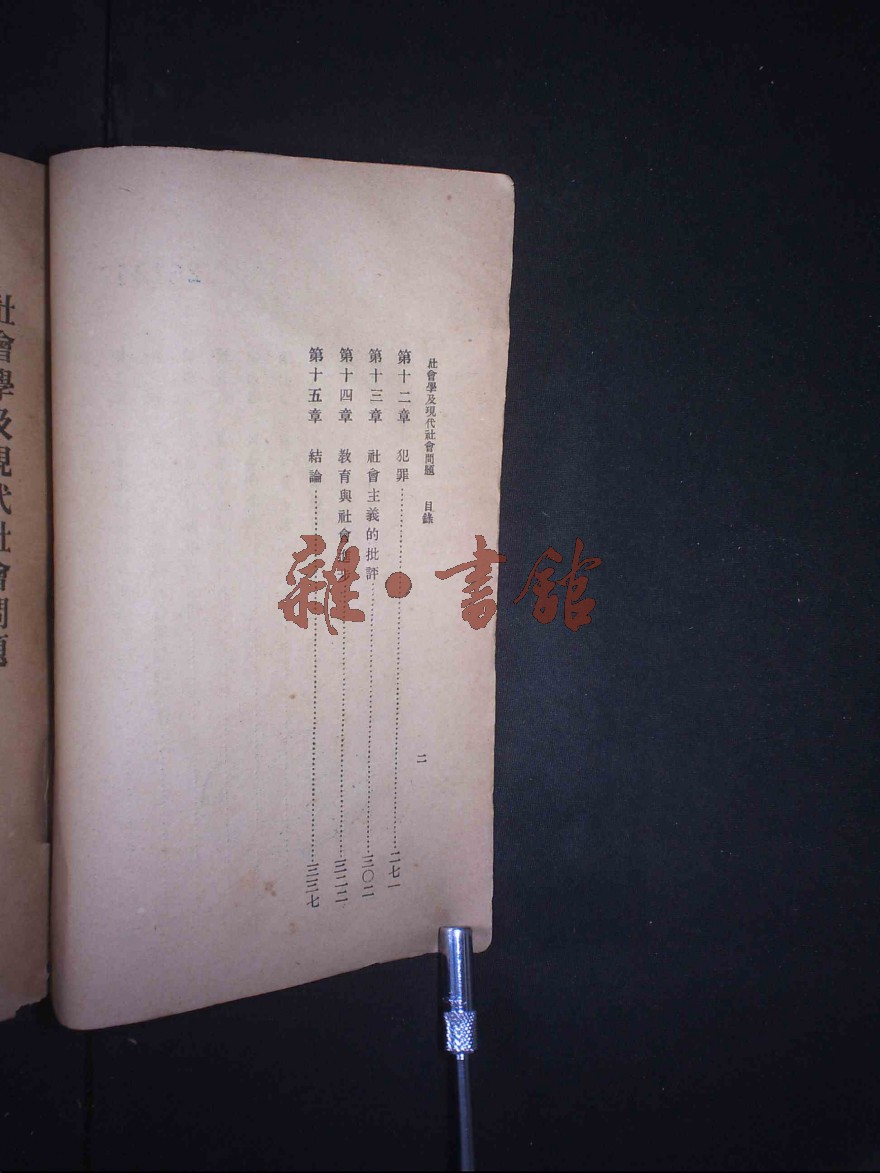 社會學及現代社會問題 目錄
二
第十二章 犯罪⋯⋯二七一
第十三章 社會主義的批評⋯⋯三〇二
第十四章 教育與社會⋯⋯三二二
第十五章 結論⋯⋯三三七
社會學及現代社會問題
雜·書館